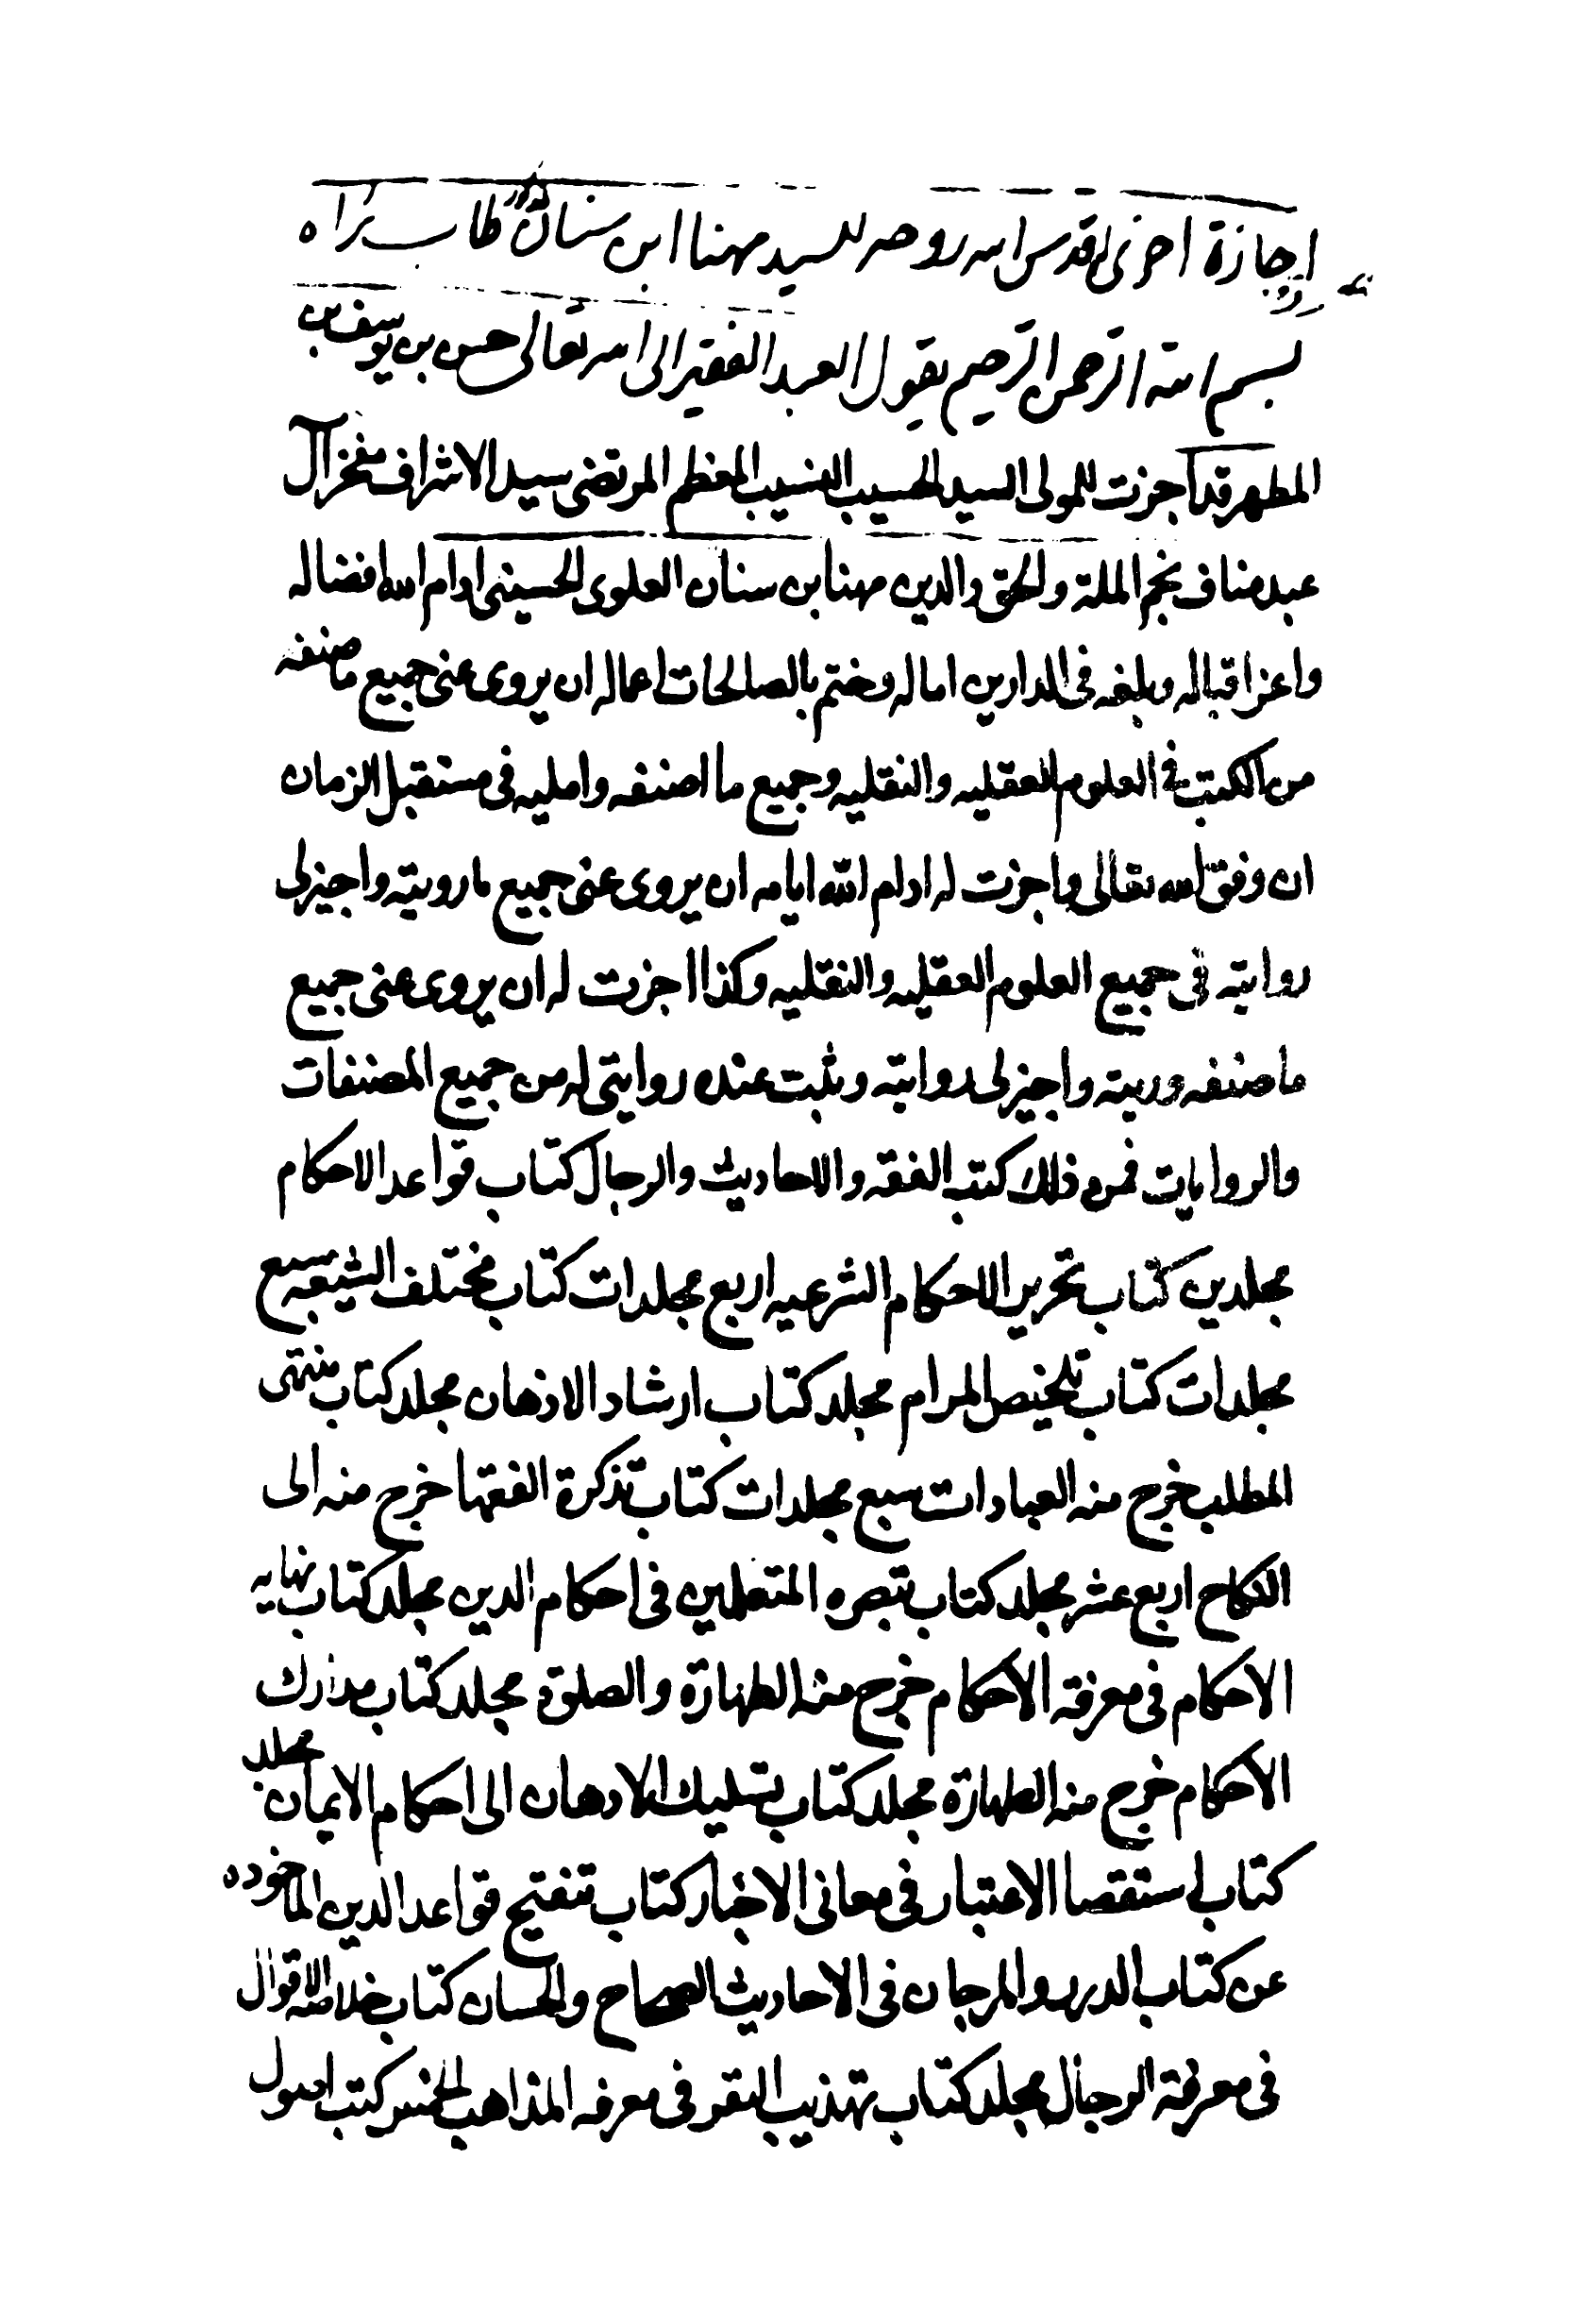 اجازة اخرى له قدس الله روحه للسيد مهنا ابن سنان طاب ثراه
بسم الله الرحمن الرحيم يقول العبد الفقير الى الله تعالى حسن بن يوسف بن
المطهر قد اجزت للمولى السيد الحسيب النسيب المعظم المرتضى سيد الاشراف مفخر آل
عبد مناف نجم الملة والحق والدين مهنا بن سنان العلوى الحسينى ادام الله افضاله
واعز اقباله وبلغه فى الدارين اماله وختم بالصالحات اعماله ان يروى عنى جميع ما صنفه
من الكتب فى العلوم العقليه والنقليه وجميع ما اصنفه واملیه فى مستقبل الزمان
ان وفق الله تعالى واجزت له ادام الله ايامه ان يروى عنى جميع ما رويته واجيز لى
روايته فى جميع العلوم العقليه والنقليه وكذا اجزت له ان يروى عنى جميع
ما صنفه وريته واجيز لى روايته وثبت عنده روايتى له من جميع المصنفات
والروايات فمن ذلك كتب الفقه والاحاديث والرجال كتاب قواعد الاحكام
مجلدين كتاب تحرير الاحكام الشرعيه اربع مجلدات كتاب مختلف الشيعه سبع
مجلدات كتاب تلخيص المرام مجلد كتاب ارشاد الاذهان مجلد كتاب منتهى
المطلب خرج منه العبادات سبع مجلدات كتاب تذكرة الفقها خرج منه الى
النكاح اربع عشر مجلد كتاب تبصره المتعلمين فى احكام الدين مجلد كتاب نهايه
الاحكام فى معرفته الاحكام خرج منه الطهارة والصلوة مجلد كتاب مدارك
الاحكام خرج منه الطهارة مجلد كتاب تسليك الادهان الى احكام الايمان مجلد
كتاب استقصا الاعتبار فى معانى الاخبار كتاب تنقيح قواعد الدين الماخوده
عن كتاب الدر والمرجان فى الاحاديث الصحاح والحسان كتاب خلاصه الاقوال
فى معرفة الرجال مجلد كتاب تهذيب النفر فى معرفه المذاهب الخمس كتب اصول